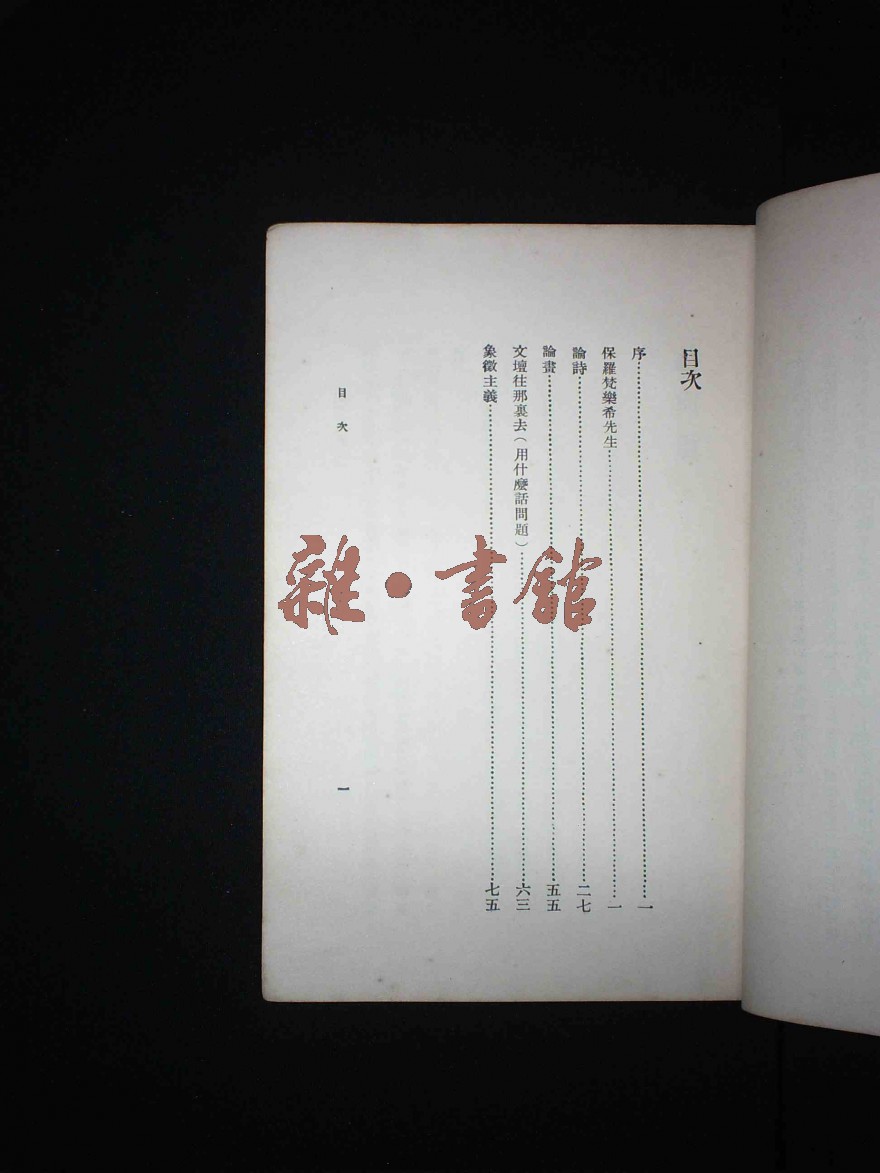 目次
序…………一
保羅梵樂希先生…………一
論詩…………二七
論畫…………五五
文壇往那裏去(用什麼話問題)…………六三
象徵主義…………七五
目次
一
雜·書館